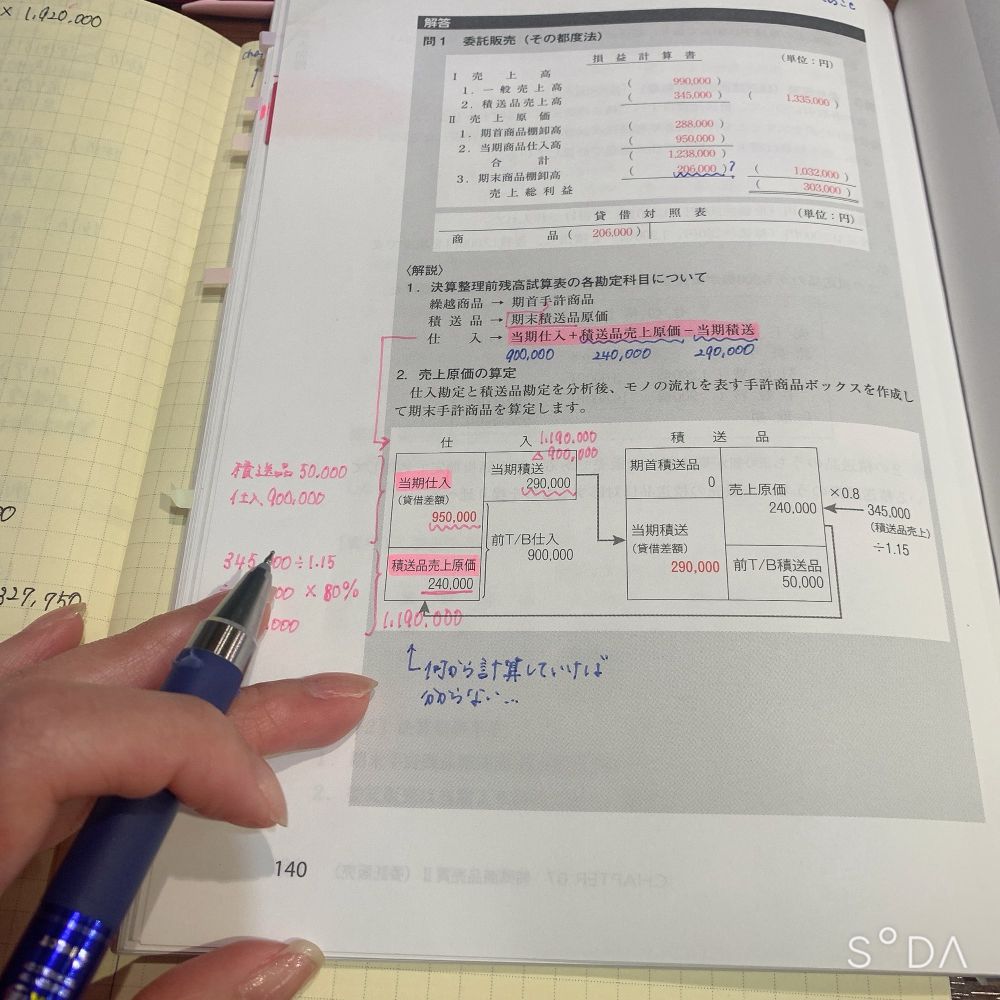 × 1,920,000
327,750
解答
問1 委託販売（その都度法）
損益計算書
（単位：円）
Ⅰ 売上高
1．一般売上高 ( 990,000 )
2．積送品売上高 ( 345,000 ) ( 1,335,000 )
Ⅱ 売上原価
1．期首商品棚卸高 ( 288,000 )
2．当期商品仕入高 ( 950,000 )
合計 ( 1,238,000 )
3．期末商品棚卸高 ( 206,000 )? ( 1,032,000 )
売上総利益 ( 303,000 )
貸借対照表
（単位：円）
商品 ( 206,000 )
〈解説〉
1．決算整理前残高試算表の各勘定科目について
繰越商品 → 期首手許商品
積送品 → 期末積送品原価
仕入 → 当期仕入＋積送品売上原価－当期積送
900,000 240,000 290,000
2．売上原価の算定
仕入勘定と積送品勘定を分析後、モノの流れを表す手許商品ボックスを作成し
て期末手許商品を算定します。
仕入 1,190,000
△ 900,000
当期仕入
(貸借差額)
950,000
積送品売上原価
240,000
1,190,000
当期積送
290,000
前T/B仕入
900,000
積送品
期首積送品
0
当期積送
(貸借差額)
290,000
売上原価
240,000
前T/B積送品
50,000
×0.8
345,000
(積送品売上)
÷1.15
積送品 50,000
仕入 900,000
÷1.15
× 80%
↑何から計算していけば
分からない…
140
SODA